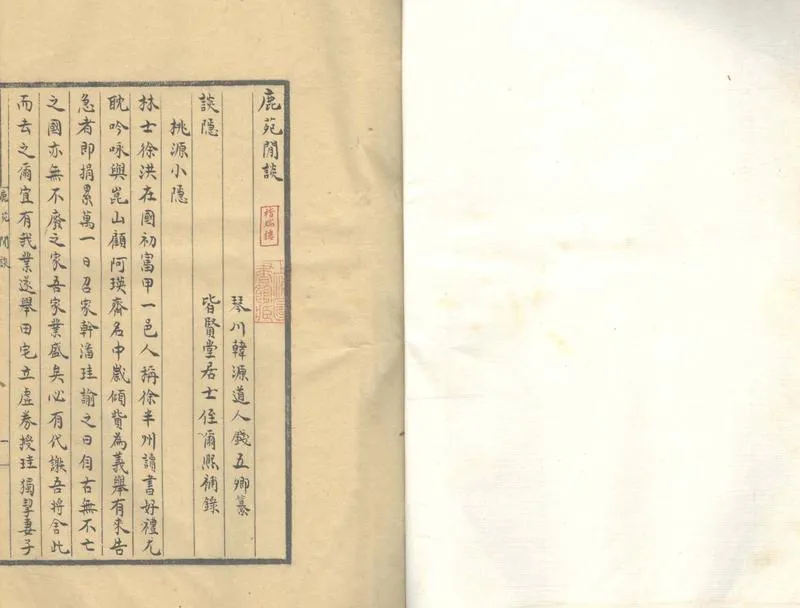 鹿苑閒談
稽瑞樓
琴川韓源道人錢五卿纂
談隱
皆賢堂居士侄爾熙補錄
桃源小隱
林士徐洪在國初富甲一邑人稱徐半州讀書好禮尤
耽吟咏與崑山顧阿瑛齊名中歲傾貲為義舉有來告
急者即捐累萬一日召家幹潘珪諭之曰自古無不亡
之國亦無不廢之家吾家業盛矣必有代謝吾將舍此
而去之爾宜有我業遂舉田宅立虛券授珪獨挈妻子
鹿苑閒談
一